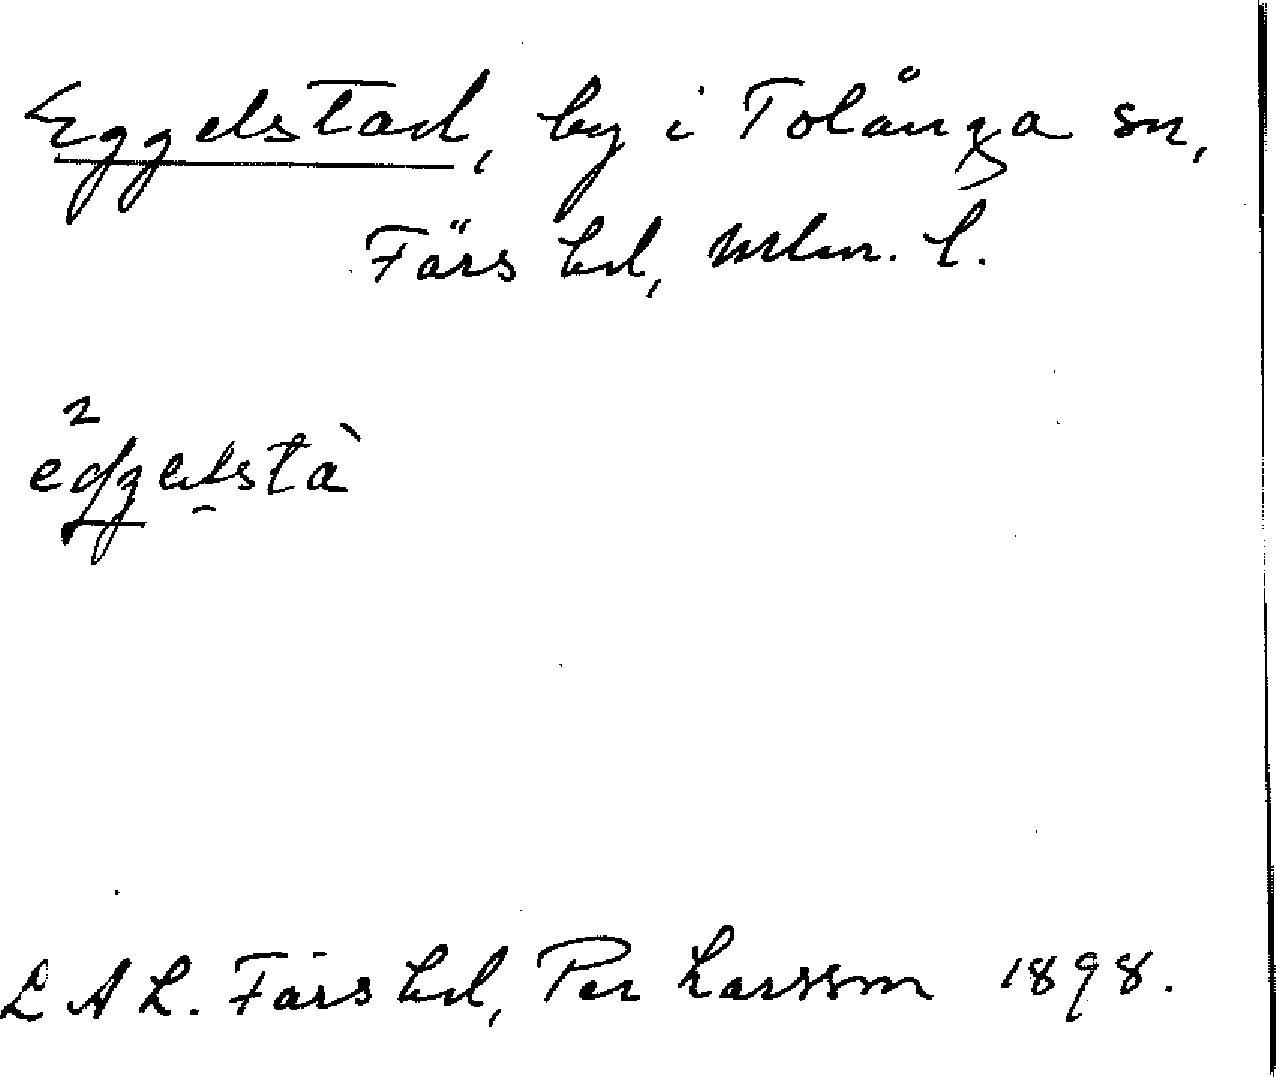 Eggelstad, by i Tolånga sn,
Färs hd, Mlm. l.
LAL. Färs hd, Per Larsson 1898.